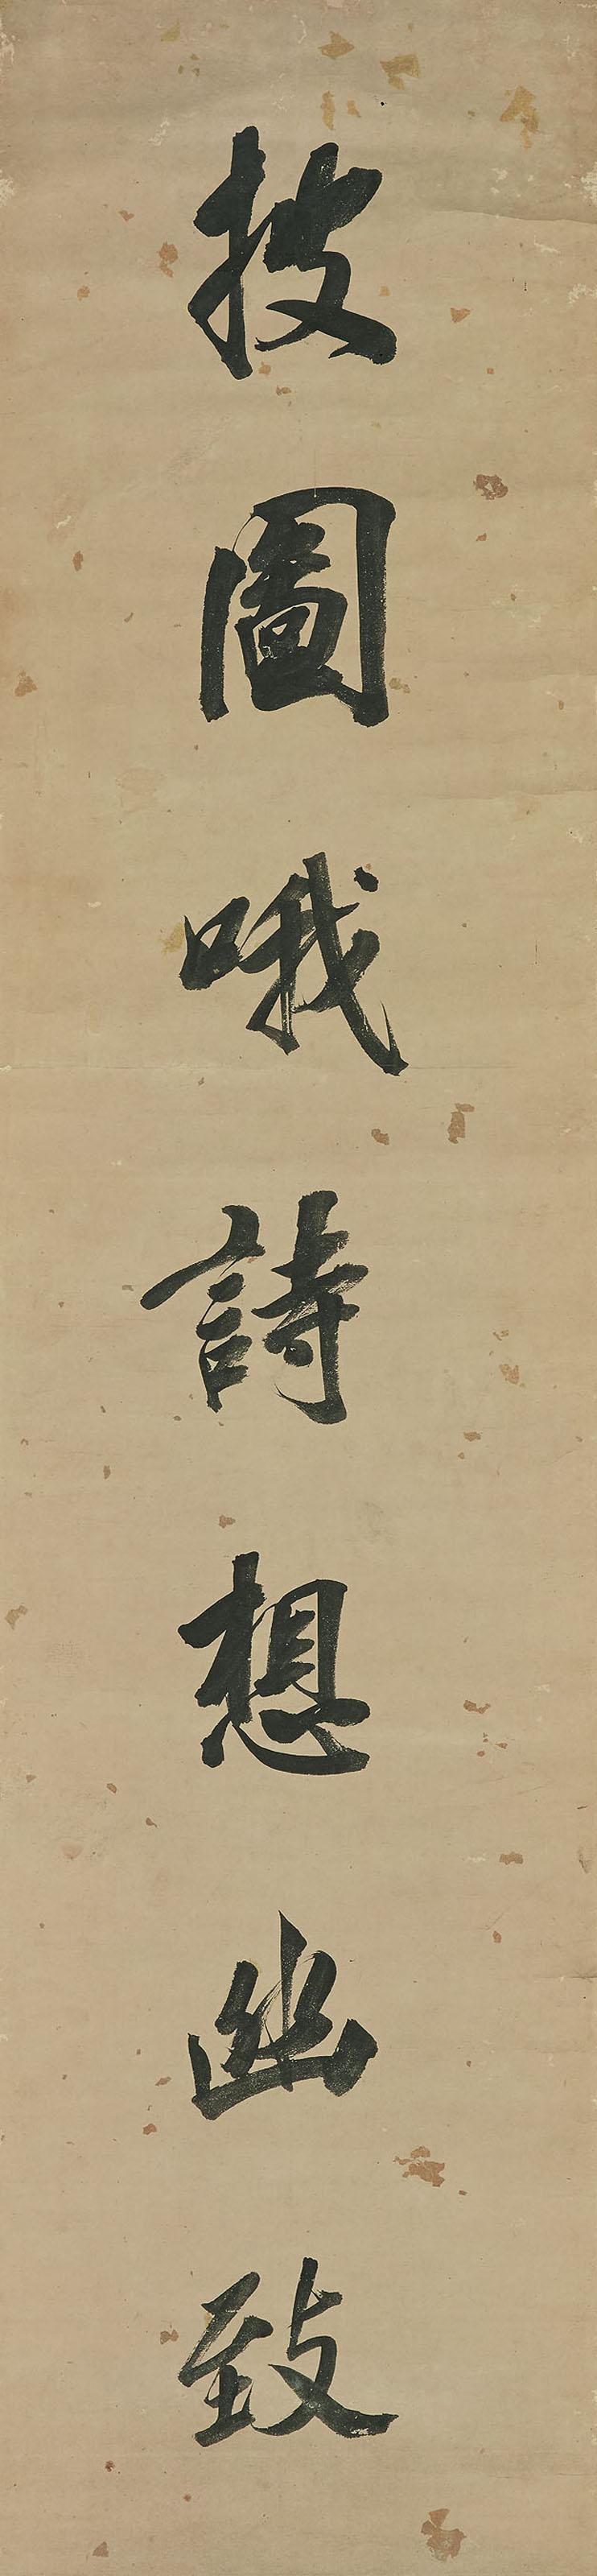 披圖哦詩想幽致